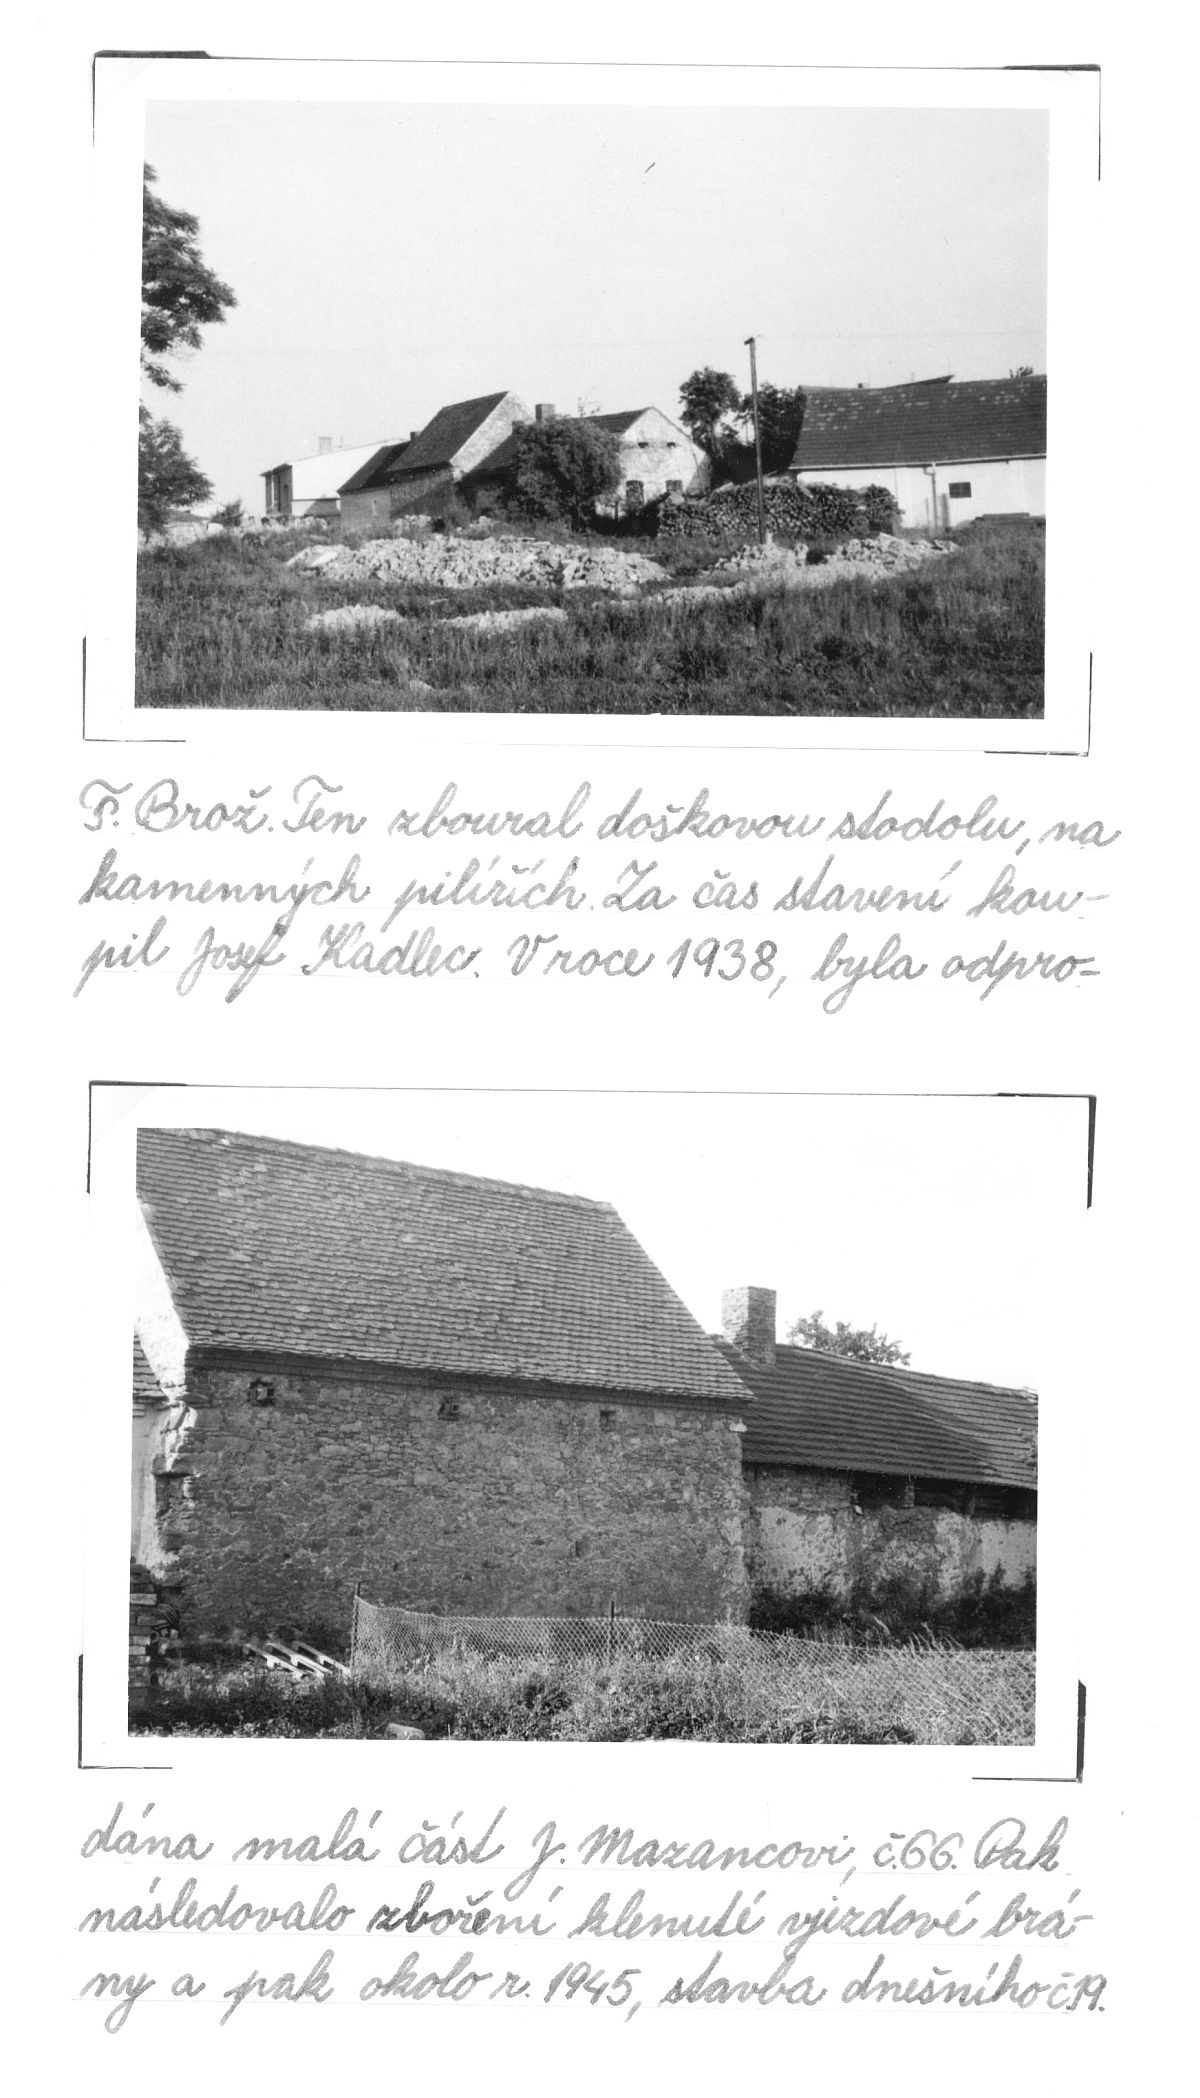 F. Brož. Ten zboural doškovou stodolu, na
kamenných pilířích. Za čas stavení kou-
pil Josef Kadlec. V roce 1938, byla odpro-
dána malá část J. Mazancovi, č.66. Pak
následovalo zboření klenuté vjezdové brá-
ny a pak okolo r. 1945, stavba dnešního č.19.